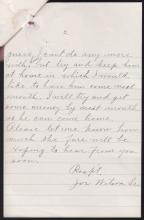 2
guess I cant do any more
with, but try and keep him
at home in which I would
like to have him come next
month. I will try and get
some money by next month
so he can come home.
Please let me know how
much the fare will be
hoping to hear from you
soon.
Respt.
Jos